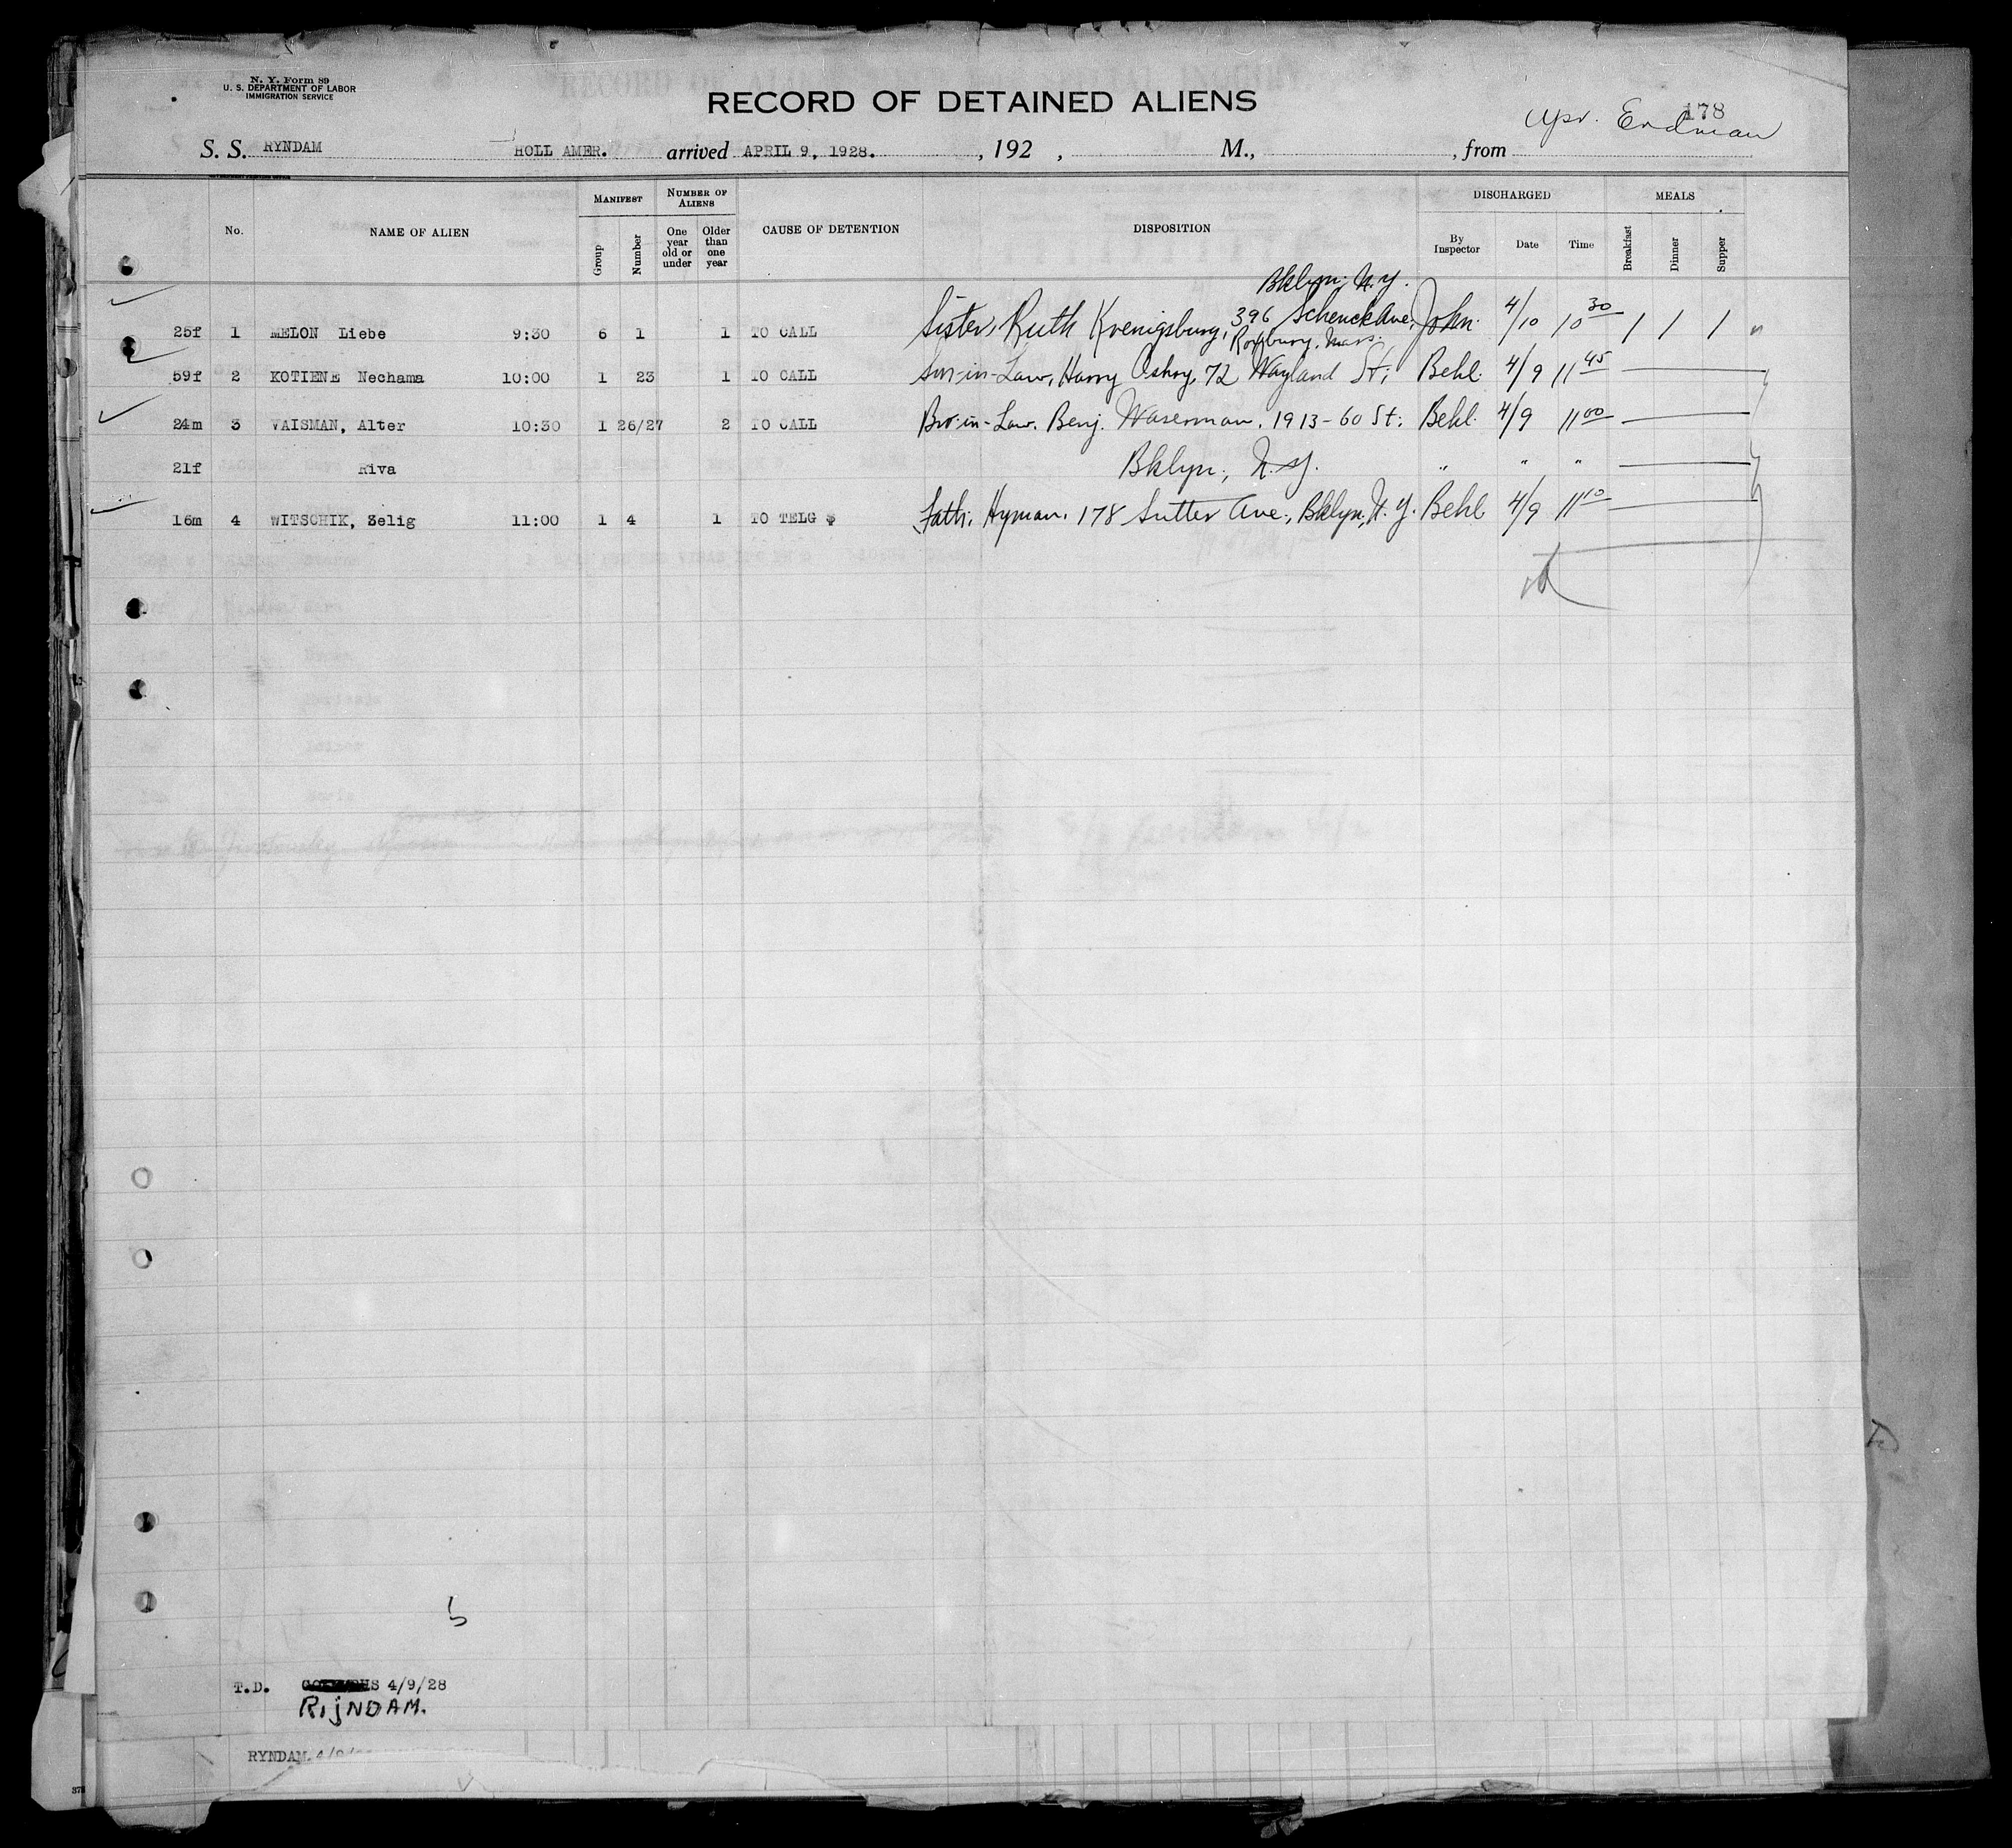 N. Y. Form 89
U. S. DEPARTMENT OF LABOR
IMMIGRATION SERVICE
RECORD OF DETAINED ALIENS
178
Erdman
S. S. RYNDAM HOLL AMER. arrived APRIL 9, 1928. , 192 , M., , from
No. NAME OF ALIEN MANIFEST Group Number NUMBER OF ALIENS One year old or under Older than one year CAUSE OF DETENTION DISPOSITION DISCHARGED By Inspector Date Time MEALS Breakfast Dinner Supper
Bklyn, N.Y.
25f 1 MELON Liebe 9:30 6 1 1 TO CALL Sister, Ruth Koenigsburg, 396 Schenck Ave, John. 4/10 10 30 / / /
Roxbury, Mass.
59f 2 KOTIENE Nechama 10:00 1 23 1 TO CALL Son-in-Law, Harry Oskry, 72 Wayland St; Behl. 4/9 11 45
24m 3 VAISMAN, Alter 10:30 1 26/27 2 TO CALL Bro-in-Law. Benj. Waserman. 1913-60 St; Behl. 4/9 11 00
21f Riva Bklyn; N.Y. " " "
16m 4 WITSCHIK, Zelig 11:00 1 4 1 TO TELG $ Fath; Hyman. 178 Sutter Ave; Bklyn, N.Y. Behl 4/9 11 10
T.D. 4/9/28
RijNDAM.
RYNDAM